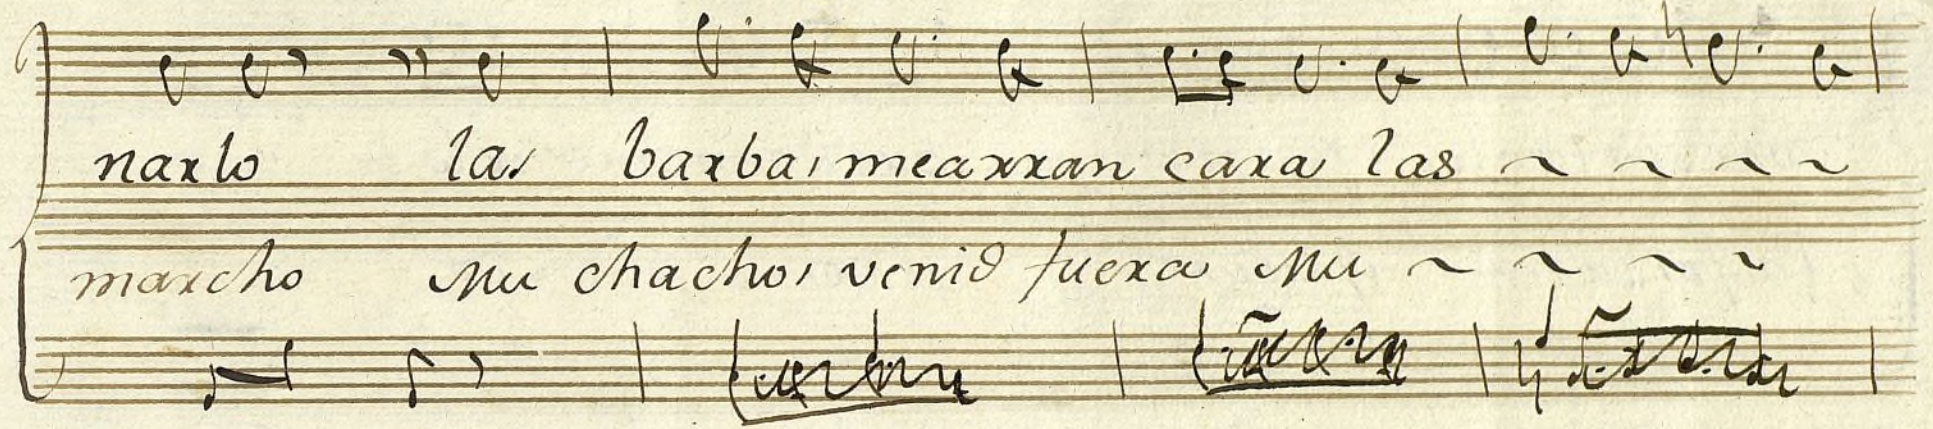 narlo las barbas mearran cara las ~ ~ ~ ~
marcho Mu chachos venid fuera Mu ~ ~ ~ ~